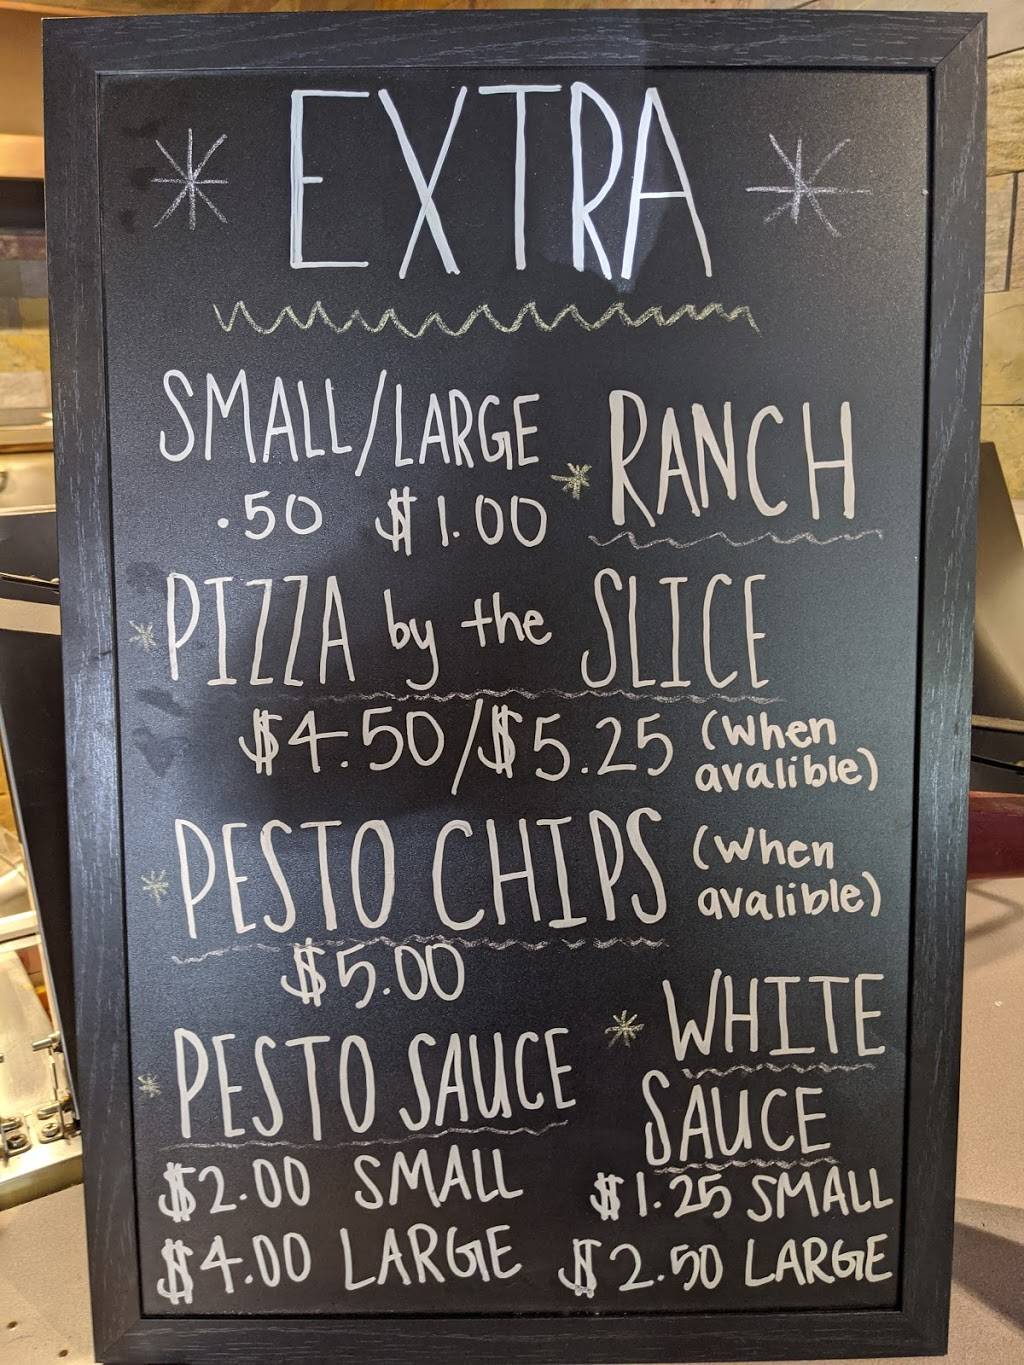 EXTRA
SMALL/LARGE
.50 $1.00
RANCH
PIZZA by the SLICE
$4.50/$5.25 (When
avalible)
PESTO CHIPS (When
avalible)
$5.00
PESTO SAUCE
$2.00 SMALL
$4.00 LARGE
WHITE
SAUCE
$1.25 SMALL
$2.50 LARGE